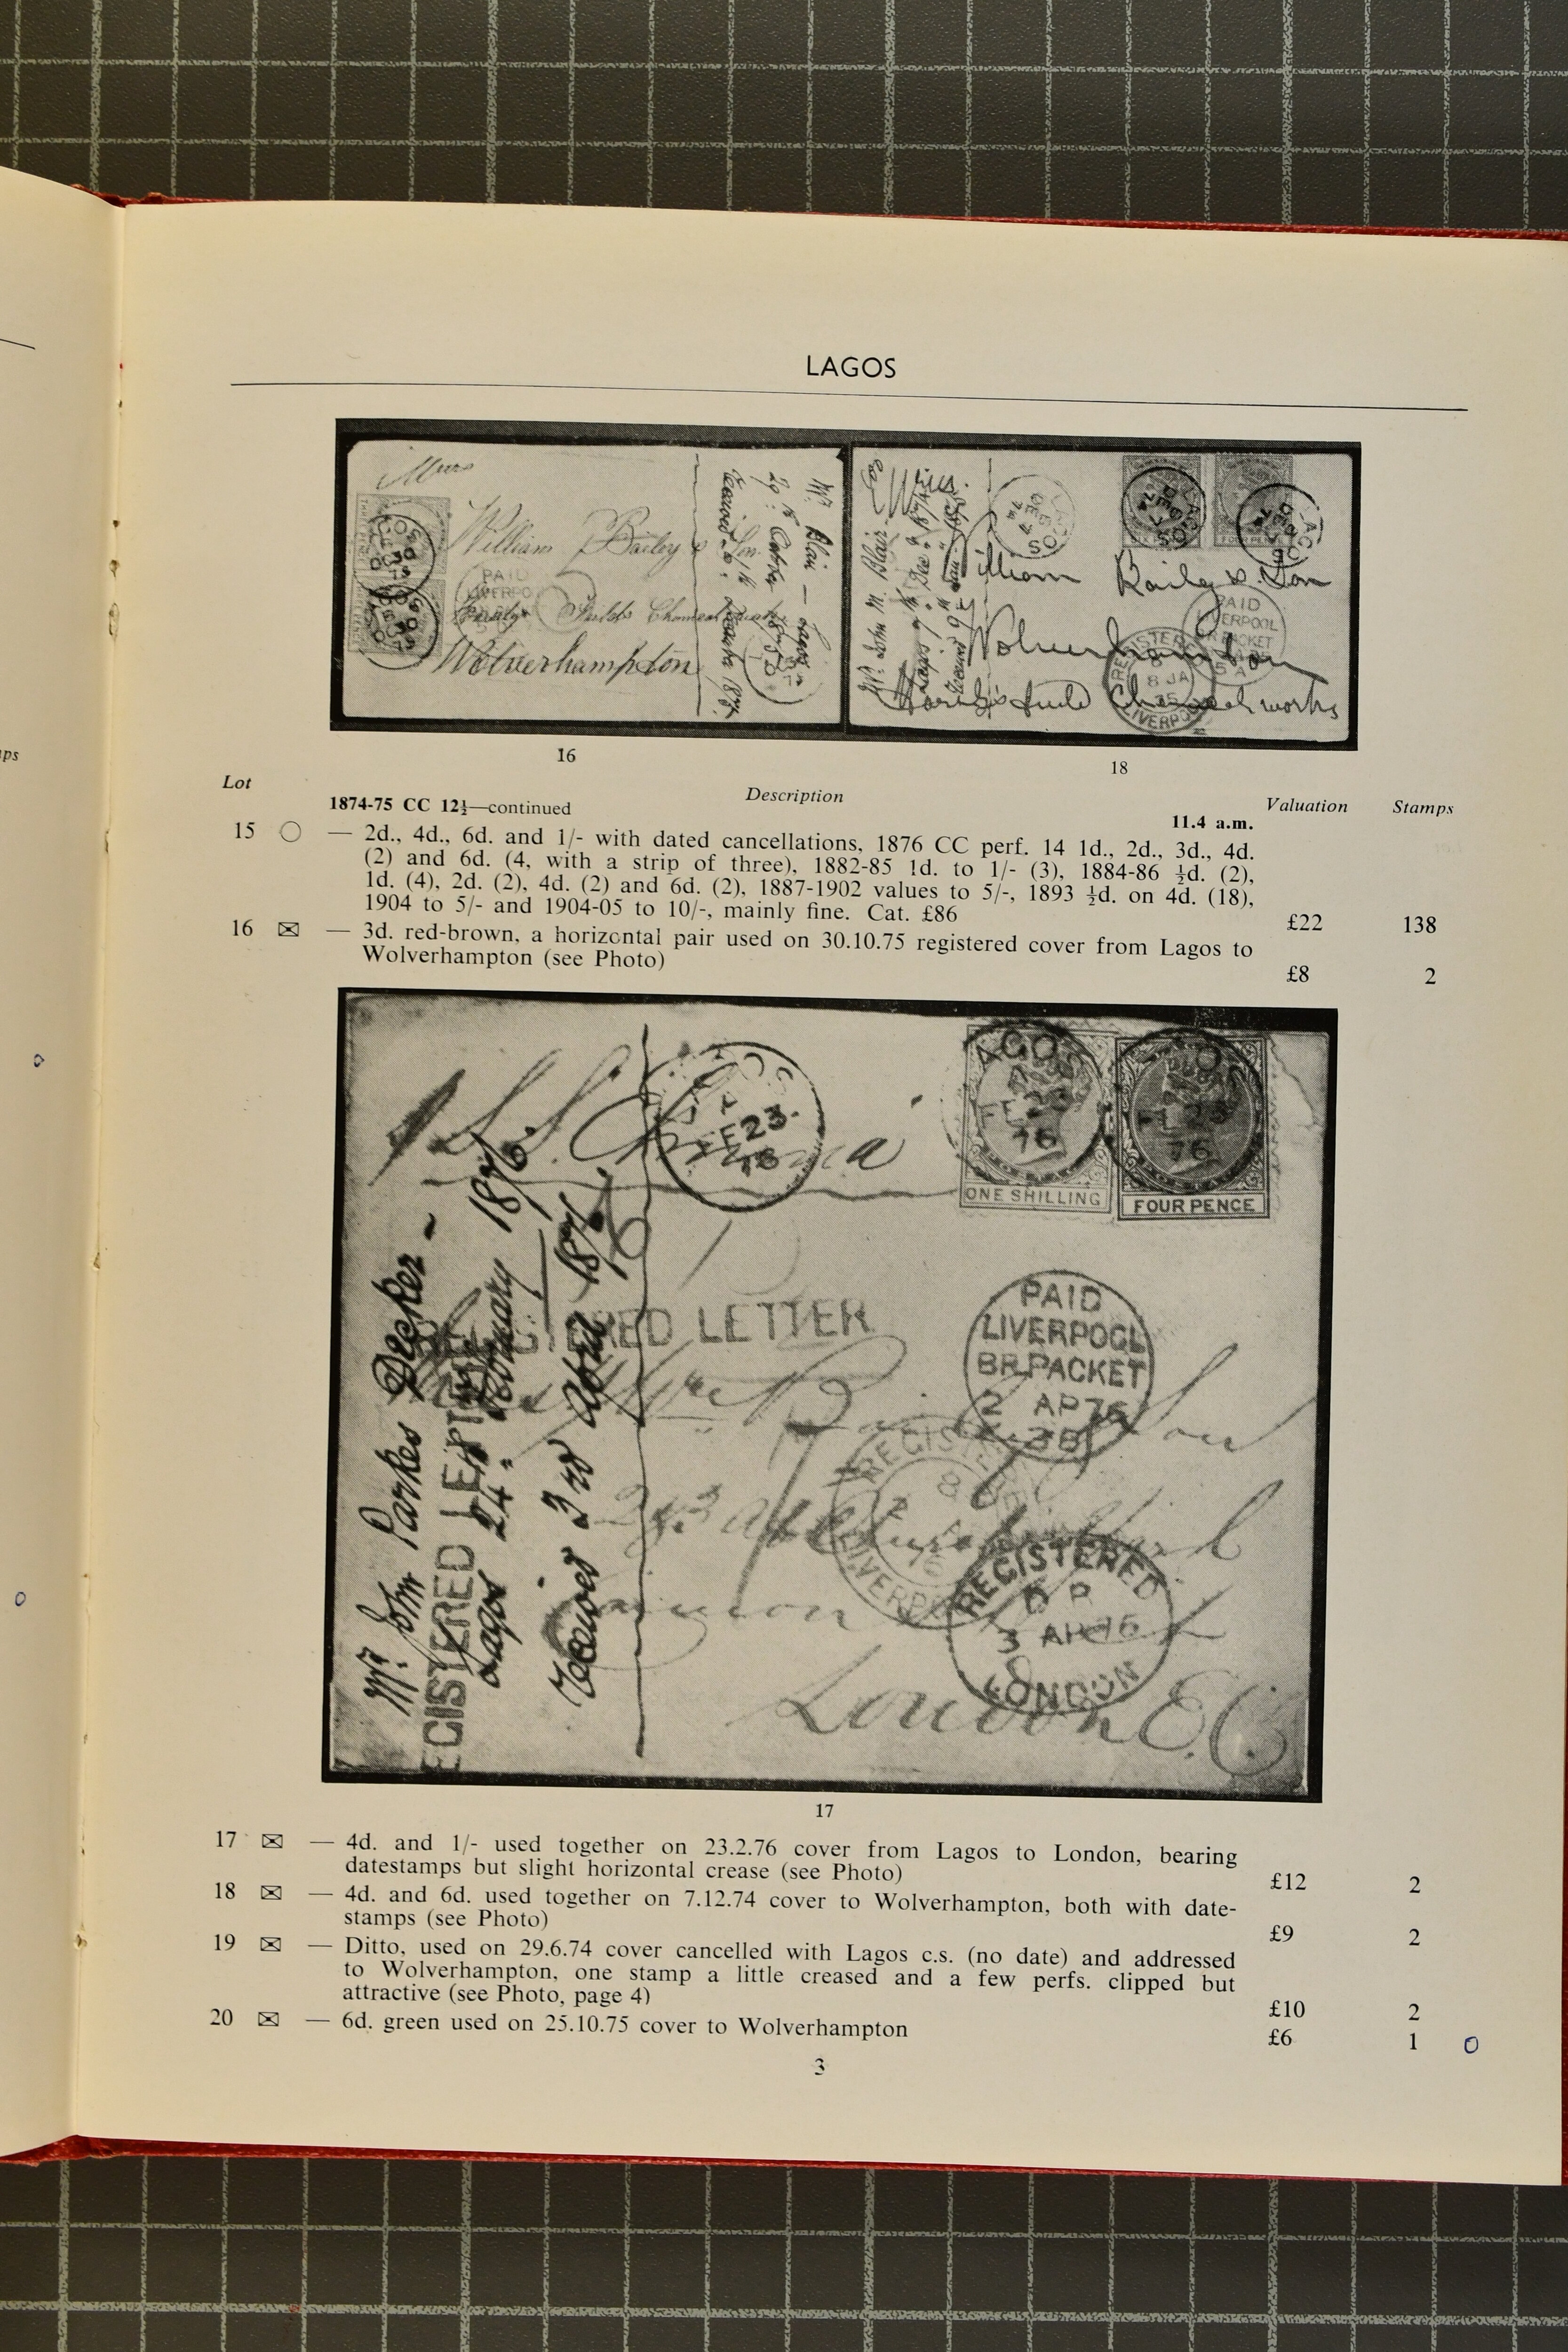 ps
LAGOS
William Bailey & Son
Wolverhampton
PAID
LIVERPO
William Baily & Son
Wolverhampton
PAID
LIVERPOOL
BR PACKET
REGISTERED
8 JA
75
LIVERPOOL
LAGOS
DE 7
74
16
18
Lot
Description
Valuation
Stamps
1874-75 CC 12½—continued
11.4 a.m.
15 ○ — 2d., 4d., 6d. and 1/- with dated cancellations, 1876 CC perf. 14 1d., 2d., 3d., 4d.
(2) and 6d. (4, with a strip of three), 1882-85 1d. to 1/- (3), 1884-86 ½d. (2),
1d. (4), 2d. (2), 4d. (2) and 6d. (2), 1887-1902 values to 5/-, 1893 ½d. on 4d. (18),
1904 to 5/- and 1904-05 to 10/-, mainly fine. Cat. £86 £22 138
16 ✉ — 3d. red-brown, a horizontal pair used on 30.10.75 registered cover from Lagos to
Wolverhampton (see Photo) £8 2
LAGOS
FE 23
76
ONE SHILLING
FOUR PENCE
REGISTERED LETTER
PAID
LIVERPOOL
BR.PACKET
2 AP 76
3B
Mr. John Parkes Decker -
Lagos 24 February 1876.
Received 3rd April 1876
REGISTERED LETTER
REGISTERED
3 AP 76
LONDON
London E.C.
17
17 ✉ — 4d. and 1/- used together on 23.2.76 cover from Lagos to London, bearing
datestamps but slight horizontal crease (see Photo) £12 2
18 ✉ — 4d. and 6d. used together on 7.12.74 cover to Wolverhampton, both with date-
stamps (see Photo) £9 2
19 ✉ — Ditto, used on 29.6.74 cover cancelled with Lagos c.s. (no date) and addressed
to Wolverhampton, one stamp a little creased and a few perfs. clipped but
attractive (see Photo, page 4) £10 2
20 ✉ — 6d. green used on 25.10.75 cover to Wolverhampton £6 1
3